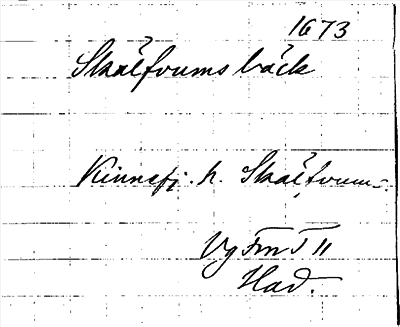 1673
Skälfvums bäck
Kinnefj. h. Skälfvum-
Vg Fm T 11
Had.